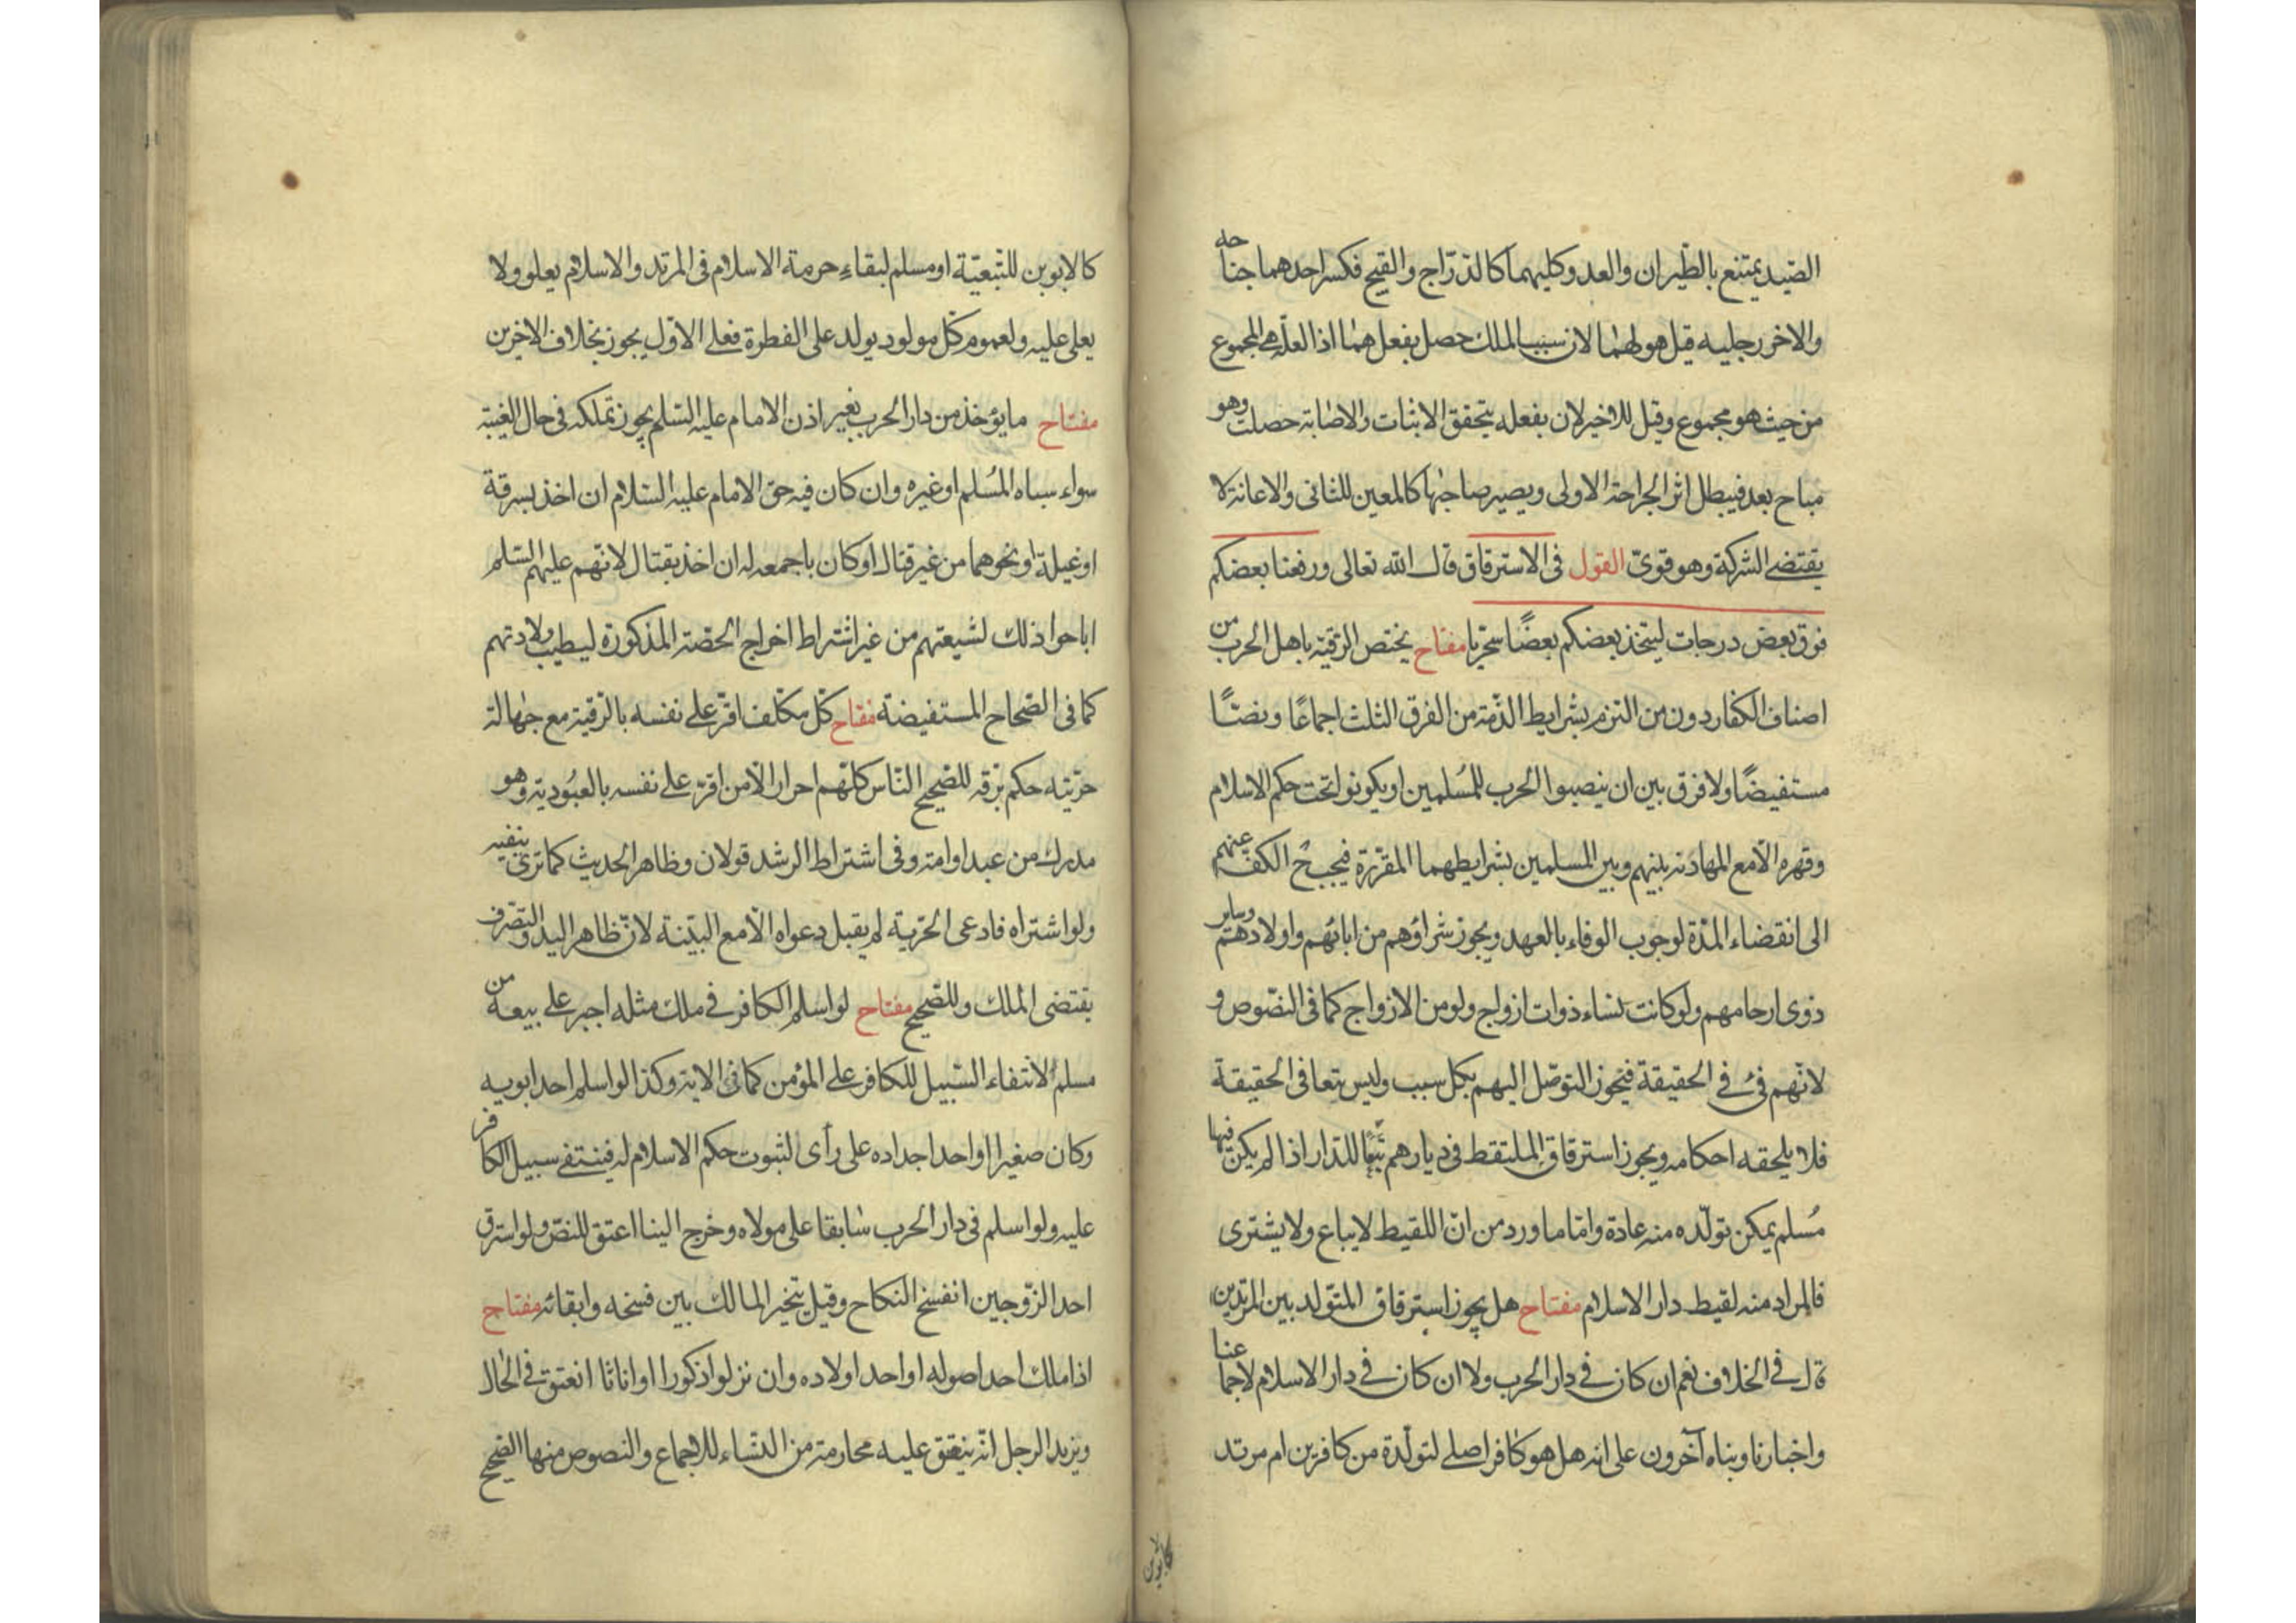 الصّيد يمتنع بالطّيران والعدو كليهما كالدّرّاج والقبج فكسر احدهما جناحه
والاخر رجليه قيل هو لهما لان سبب الملك حصل بفعلهما اذ العلّة هى المجموع
من حيث هو مجموع وقيل للاخير لان بفعله يتحقق الاثبات والاصابة حصلت وهو
مباح بعد فيبطل اثر الجراحة الاولى ويصير صاحبها كالمعين للثانى والاعانة لا
يقتضى الشركة وهو قوىّ القول فى الاسترقاق قال الله تعالى ورفعنا بعضكم
فوق بعض درجات ليتخذ بعضكم بعضًا سخريا مفتاح يختص الرقيّة باهل الحرب من
اصناف الكفّار دون من التزم بشرايط الذّمّة من الفرق الثلث اجماعًا ونصّا
مستفيضًا ولا فرق بين ان ينصبوا الحرب للمُسلمين او يكونوا تحت حكم الاسلام
وقهره الّا مع المهادنة بينهم وبين المسلمين بشرايطهما المقرّرة فيجب ح الكفّ عنهم
الى انقضاء المدّة لوجوب الوفاء بالعهد ويجوز شراؤهم من ابائهم واولادهم وساير
ذوى ارحامهم ولو كانت نساء ذوات ازواج ولو من الازواج كما فى النصّوص و
لانّهم فئ فى الحقيقة فيجوز التوصّل اليهم بكل سبب وليس بيعا فى الحقيقة
فلا يلحقه احكامه ويجوز استرقاق الملتقط فى ديارهم تبعًا للدّار اذا لم يكن فيها
مُسلم يمكن تولّده منه عادة وامّا ما ورد من انّ اللقيط لا يباع ولا يشترى
فالمراد منه لقيط دار الاسلام مفتاح هل يجوز استرقاق المتولد بين المرتدين
قال فى الخلاف نعم ان كان فى دار الحرب ولا ان كان فى دار الاسلام لاجماعنا
واخبارنا وبناه آخرون على انه هل هو كافر اصلى لتولّدة من كافرين ام مرتد
كالابوين
كالابوين للتّبعيّة او مسلم لبقاء حرمة الاسلام فى المرتد والاسلام يعلو ولا
يعلى عليه ولعموم كلّ مولود يولد على الفطرة فعلى الاوّل يجوز بخلاف الاخرين
مفتاح ما يؤخذ من دار الحرب بغير اذن الامام عليه السّلم يجوز تملكه فى حال الغيبة
سواء سباه المُسلم او غيره وان كان فيه حق الامام عليه السّلام ان اخذ بسرقة
او غيلة او نحوهما من غير قتال او كان باجمعه له ان اخذ بقتال لانّهم عليهم السّلم
اباحوا ذلك لشيعتهم من غير اشتراط اخراج الحصّة المذكورة ليطيب ولادتهم
كما فى الصّحاح المستفيضة مفتاح كلّ مكلّف اقرّ على نفسه بالرّقية مع جهالة
حرّيته حكم برقه للصّحيح النّاس كلّهم احرار الّا من اقرّ على نفسه بالعبُودية وهو
مدرك من عبد او امة وفى اشتراط الرشد قولان وظاهر الحديث كما ترى ينفيه
ولو اشتراه فادعى الحّرية لم يقبل دعواه الّا مع البيّنة لانّ ظاهر اليد والتصّرف
يقتضى الملك وللصّحيح مفتاح لو اسلم الكافر فى ملك مثله اجبر على بيعه من
مسلم لانتفاء السّبيل للكافر على المؤمن كما فى الاية وكذا لو اسلم احد ابويه
وكان صغيرا او احد اجداده على رأى لثبوت حكم الاسلام له فينتفى سبيل الكافر
عليه ولو اسلم فى دار الحرب سابقا على مولاه وخرج الينا اعتق للنصّ ولو استرق
احد الزّوجين انفسخ النّكاح وقيل يتخيّر المالك بين فسخه وابقائه مفتاح
اذا ملك احد اصوله او احد اولاده وان نزلوا ذكورا او اناثا انعتق فى الحال
ويزيد الرجل انّه ينعتق عليه محارمة من النّساء للاجماع والنصوص منها الصّحيح